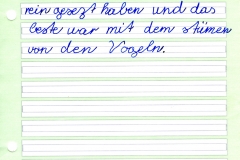 rein gesezt haben und das
beste war mit dem stümen
von den Vogeln.